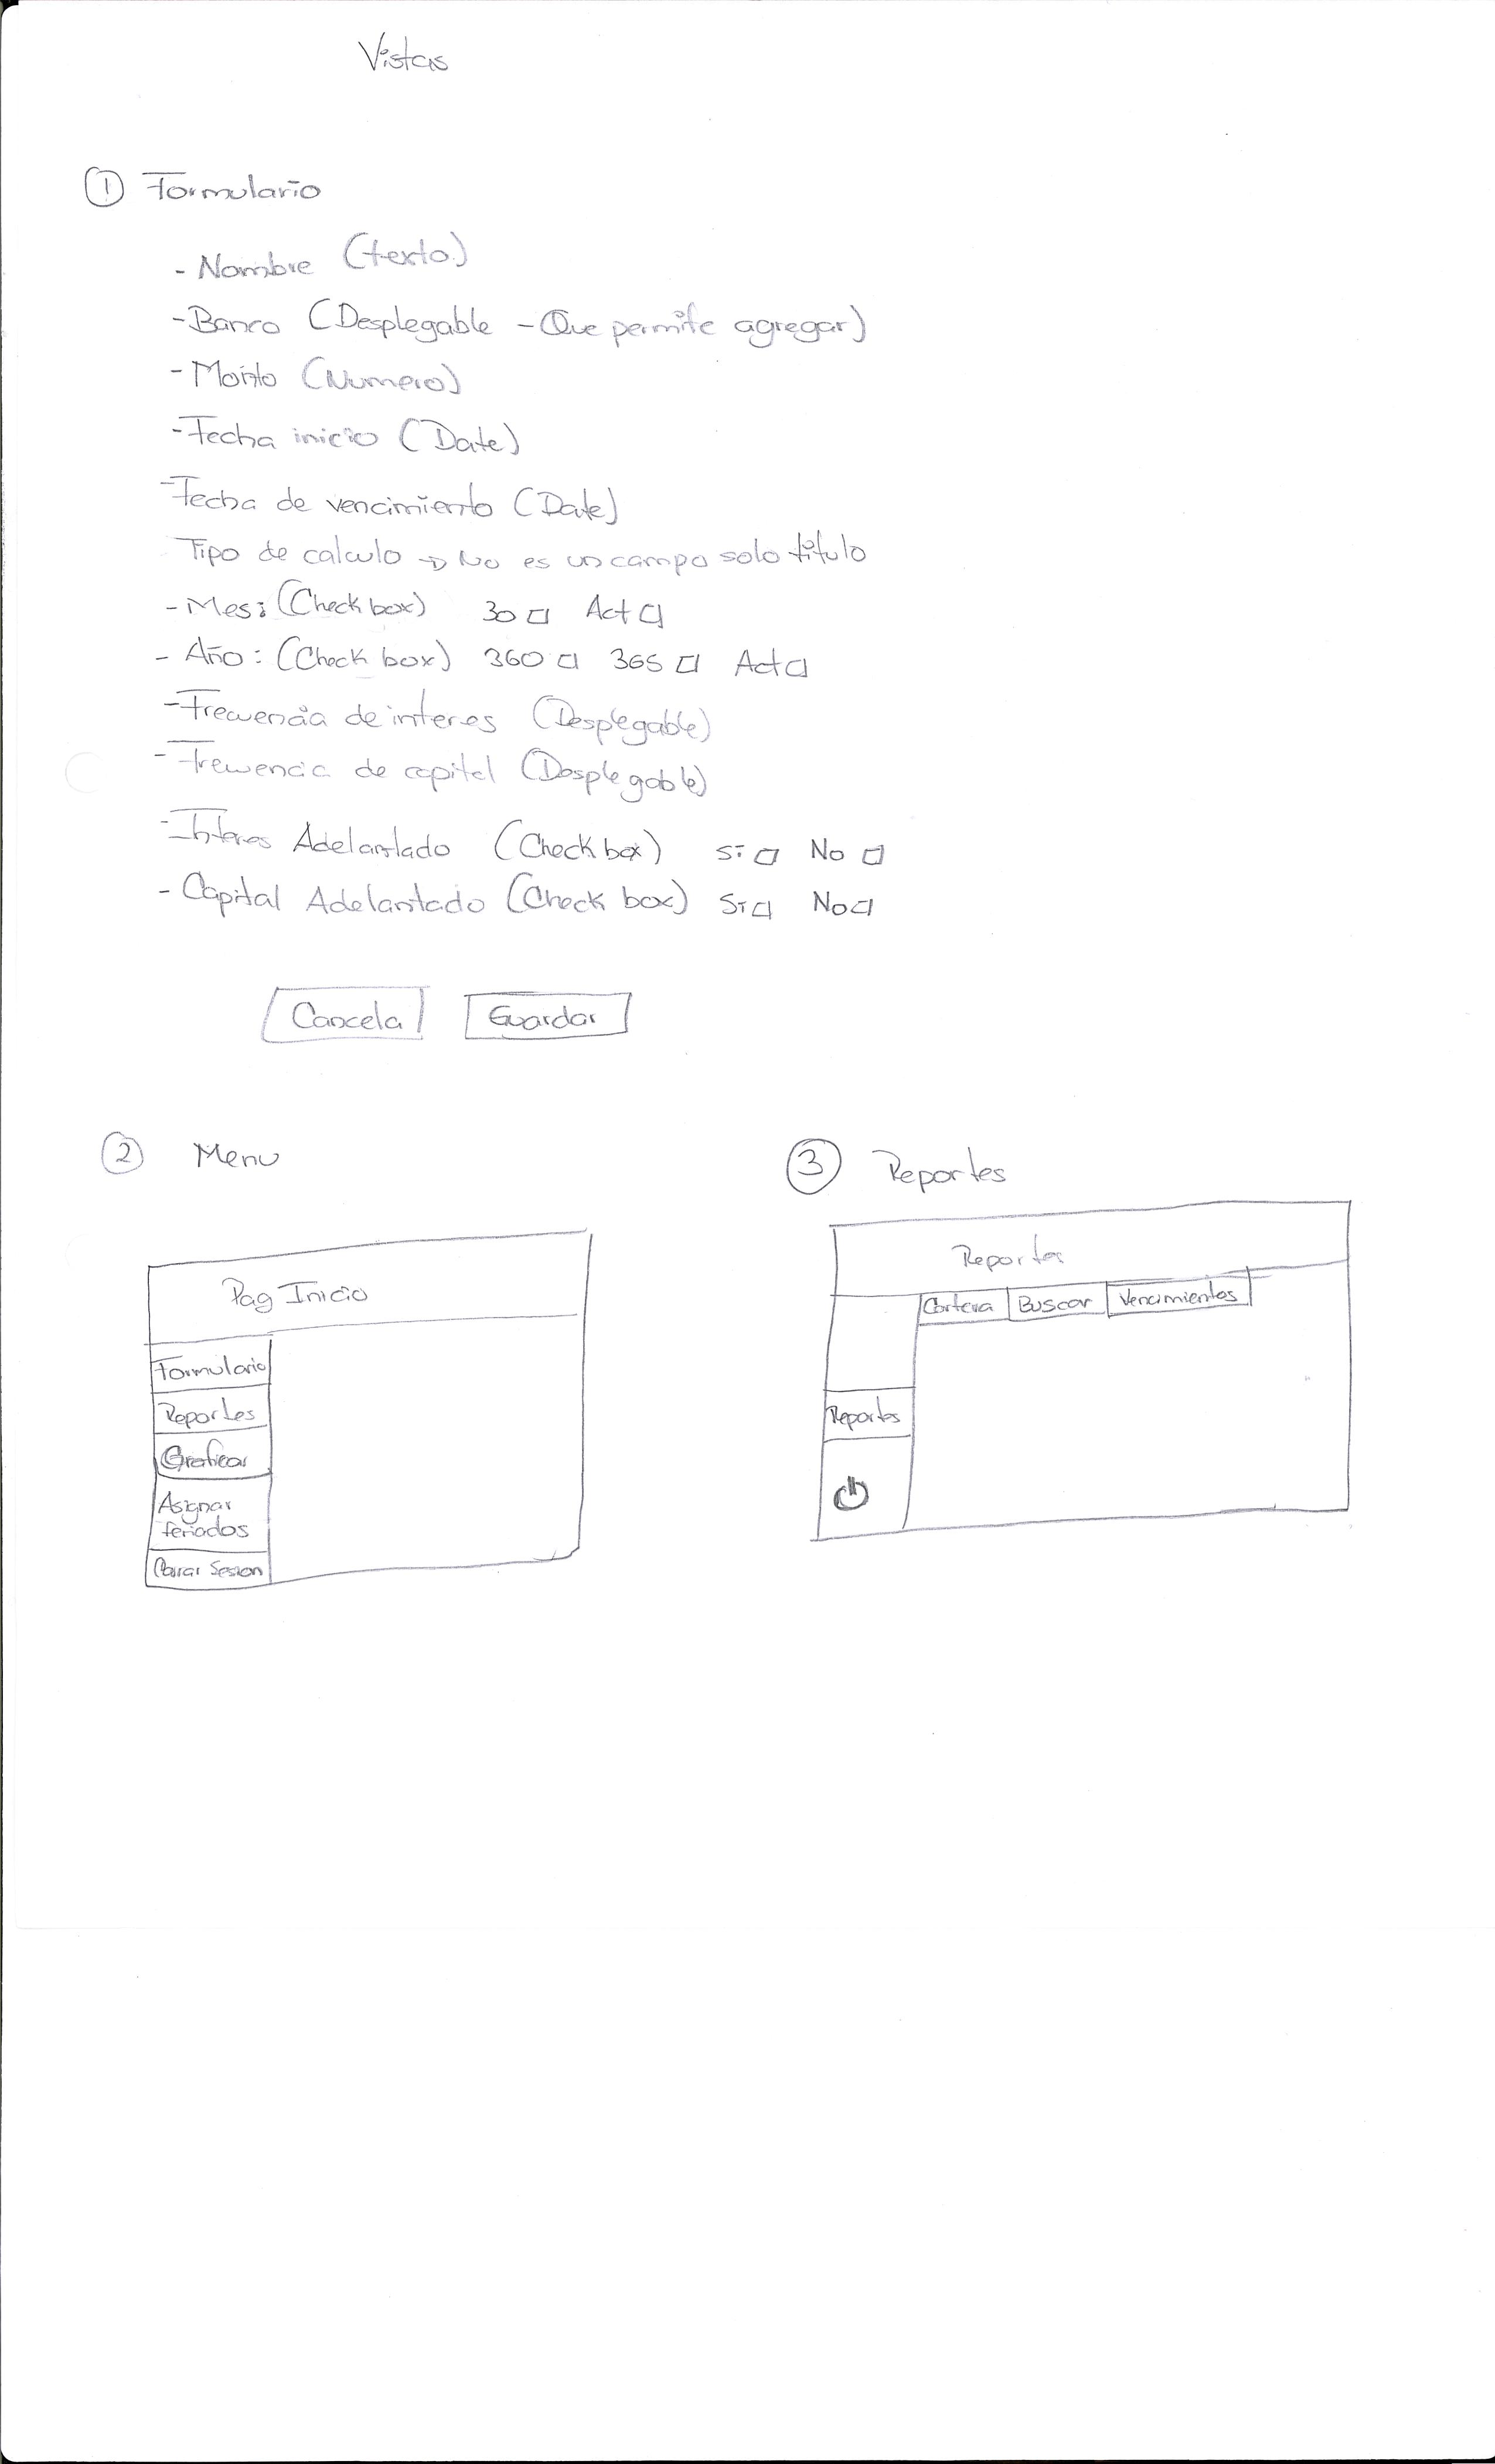 Vistas
① Formulario
- Nombre (texto)
- Banco (Desplegable - Que permite agregar)
- Monto (Numero)
- Fecha inicio (Date)
- Fecha de vencimiento (Date)
Tipo de calculo → No es un campo solo titulo
- Mes: (Check box) 30 □ Act □
- Año: (Check box) 360 □ 365 □ Act □
- Frecuencia de interes (Desplegable)
- Frecuencia de capital (Desplegable)
- Interes Adelantado (Check box) Si □ No □
- Capital Adelantado (Check box) Si □ No □
Cancela Guardar
② Menu
Pag Inicio
Formulario
Reportes
Graficar
Asignar
feriados
Cerrar Sesion
③ Reportes
Reporte
Cartera Buscar Vencimientos
Reportes